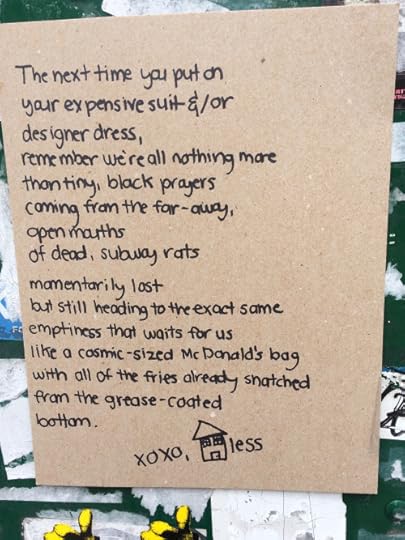 The next time you put on
your expensive suit &/or
designer dress,
remember we're all nothing more
than tiny, black prayers
coming from the far-away,
open mouths
of dead, subway rats
momentarily lost
but still heading to the exact same
emptiness that waits for us
like a cosmic-sized McDonald's bag
with all of the fries already snatched
from the grease-coated
bottom.
xoxo, less